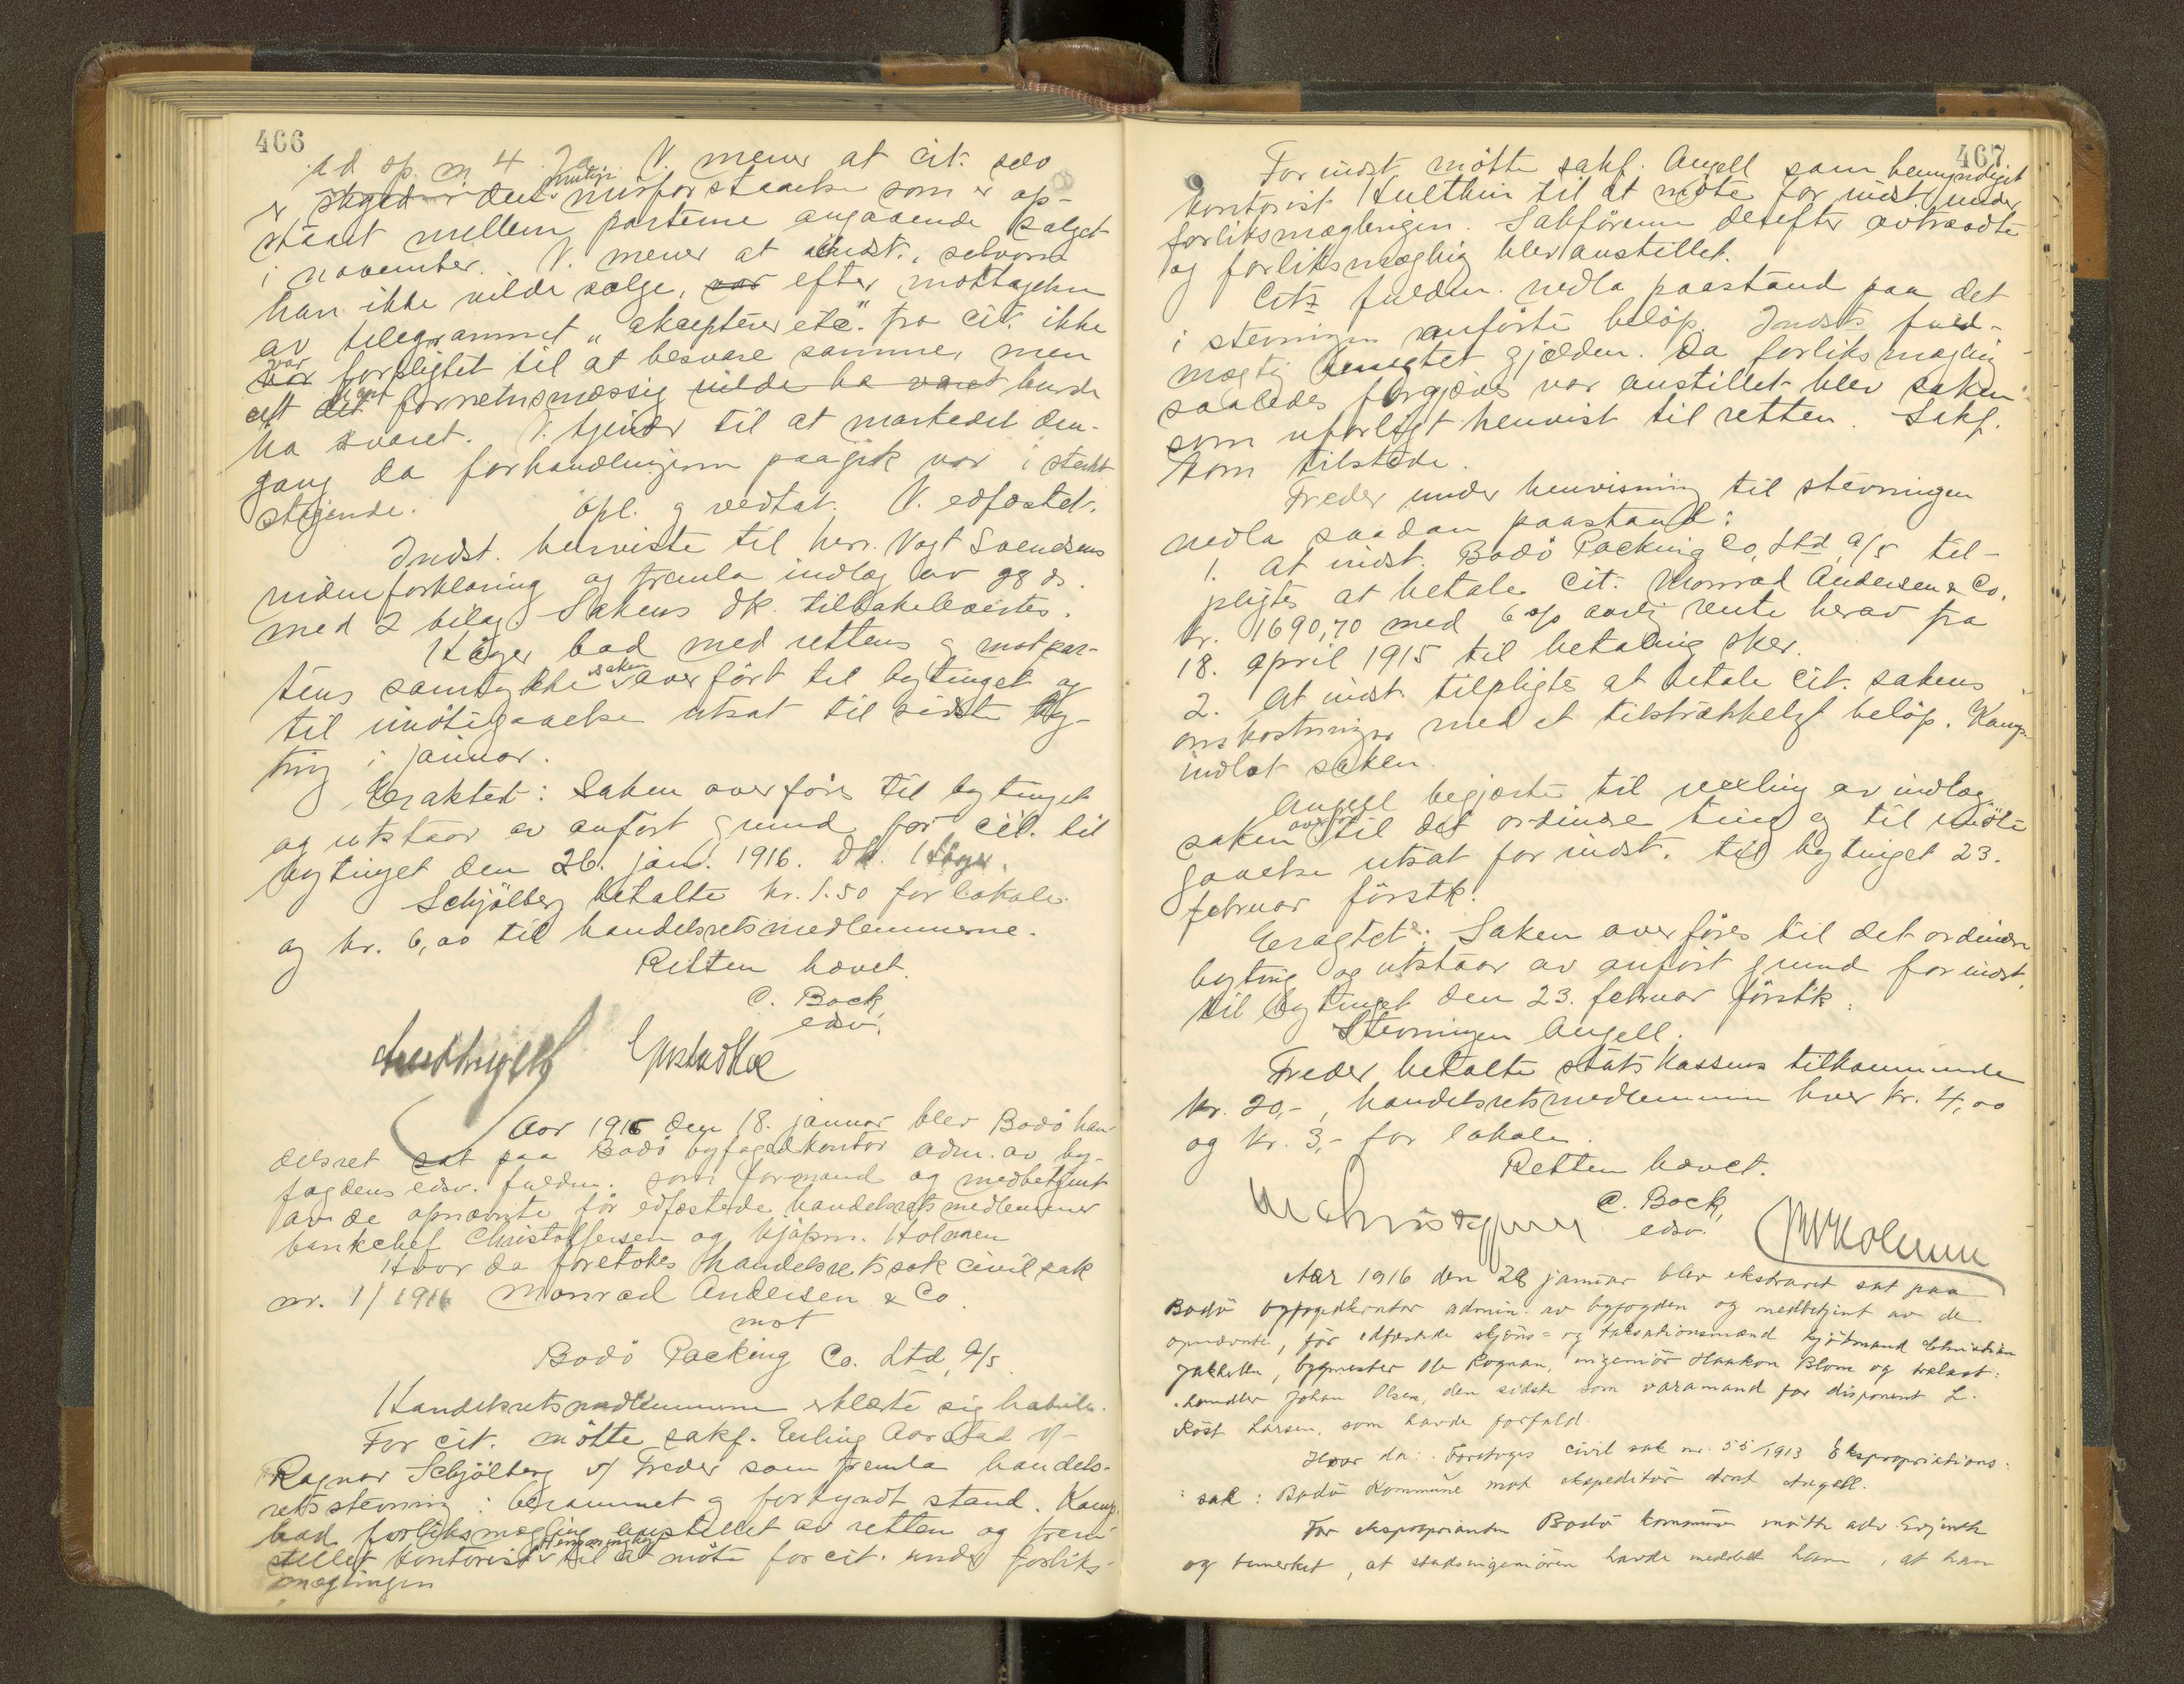 466
Ad sp. m 4 Ja. V. mener at cit. selv
er skyld i den mulige misforstaaelse som er op-
staaet mellem parterne angaaende salget
i november. V. mener at indst., selvom
han ikke vilde sælge, var efter mottagelsen
av telegrammet "aksepterer etc." fra cit. ikke
var forpligtet til at besvare samme, men
at det forretnsmæssig vilde ha varet burde
ha svaret. V. kjender til at markedet den-
gang da forhandlingerne paagik var i sterkt
stigende. Opl. og vedtat. V. edfæstet.
Indst. henviste til herr Vogt Svendsens
vidneforklaring og fremla indlæg av 28 ds.
med 2 bilag. Sakens dk. tilbakeleveredes.
Høyer bad med rettens og motpar-
tens samtykke saken overført til bytinget og
til imøtegaaelse utsat til sidste by-
ting i januar.
Eragtet: Saken overføres til bytinget
og utstaar av anført grund for cit. til
bytinget den 26. jan. 1916. Dk. Høyer.
Schjölberg betalte kr. 1.50 for lokale
og kr. 6,00 til handelsretsmedlemmerne.
Retten hævet.
C. Bock
edsv.
Aar 1916 den 18. januar blev Bodö han-
delsret sat paa Bodö byfogedkontor adm. av by-
fogdens edsv. fuldm. som formand og medbetjent
av de opnævnte för edfæstede handelsretsmedlemmer
bankchef Christoffersen og kjöpm. Holmen
Hvor da foretokes handelsretssak civil sak
nr. 1/1916 Monrad Andersen & Co.
mot
Bodö Packing Co. Ltd, A/S.
Handelsretsmedlemmerne erklærte sig habile.
For cit. mötte sakf. Erling Aarstad v/
Ragnar Schjölberg v/ Freder som fremla handels-
retsstevning: berammet og forkyndt stand. Kamp
bad forliksmægling anstillet av retten og frem-
stillet kontorist til at möte for cit. under forliks-
mæglingen
467
For indst. mötte sakf. Angell som bemyndiget
kontorist Hulthin til at möte for indst. under
forliksmæglingen. Sakförerne derefter avtraadte
og forliksmægling blev anstillet.
Cits fuldm. nedla paastand paa det
i stevningen anförte belöp. Indsts fuld-
mægtig benegtet gjælden. Da forliksmægling
saaledes forgjæves var anstillet blev saken
som uforligt henvist til retten. Sakf.
kom tilstede.
Freder under henvisning til stevningen
nedla saadan paastand:
1. At indst. Bodö Packing Co. Ltd, A/S til-
pligtes at betale cit. Monrad Andersen & Co.
kr. 1690,70 med 6 % aarlig rente herav fra
18. april 1915 til betaling sker.
2. At indst. tilpligtes at betale cit. sakens
omkostninger med et tilstrækkeligt belöp. Kamp
indlot saken.
Angell begjærte til veksling av indlæg
saken overfört til det ordinære ting og til imöte
gaaelse utsat for indst. til bytinget 23.
februar förstk.
Eragtet: Saken overföres til det ordinære
byting og utstaar av anfört grund for indst.
til bytinget den 23. februar förstk.
Stevningen Angell.
Freder betalte statskassens tilkommende
kr. 20,-, handelsretsmedlemmerne hver kr. 4,00
og kr. 3,- for lokale.
Retten hævet.
C. Bock,
edsv.
Aar 1916 den 28 januar blev ekstraret sat paa
Bodö byfogedkontor admin. av byfogden og medbetjent av de
opnævnte, för edfæstede skjöns- og taksationsmænd kjöbmand Christian
Jakhelln, bygmester Ole Rognan, ingeniör Haakon Blom og trælast-
handler Johan Olsen, den sidste som varamand for disponent L.
Röst Larsen, som havde forfald.
Hvor da: Foretoges civil sak nr. 55/1913 Ekspropriations-
sak: Bodö Kommune mot ekspeditör Arnt Angell.
For ekspropianten Bodö kommune mötte adv.
og bemerket, at stadsingeniören havde meddelt ham, at han